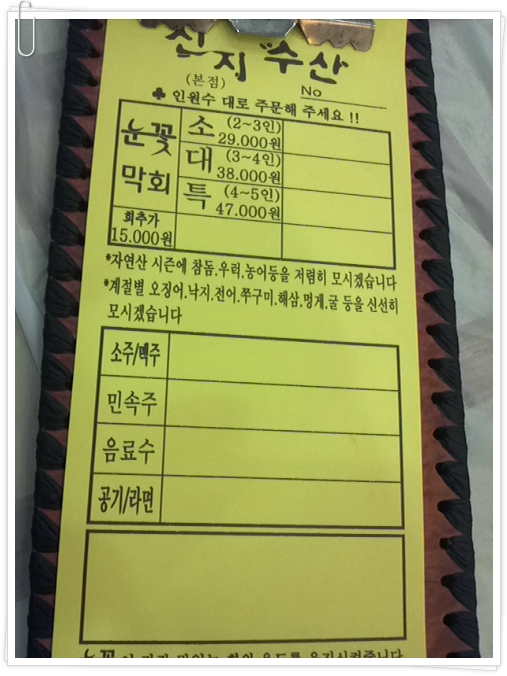 진지수산
(본점)
No
♣ 인원수 대로 주문해 주세요 !!
눈꽃 막회
소 (2~3인) 29.000원
대 (3~4인) 38.000원
특 (4~5인) 47.000원
회추가 15.000원
*자연산 시즌에 참돔.우럭.농어등을 저렴히 모시겠습니다
*계절별 오징어.낙지.전어.쭈구미.해삼.멍게.굴 등을 신선히
모시겠습니다
소주/맥주
민속주
음료수
공기/라면